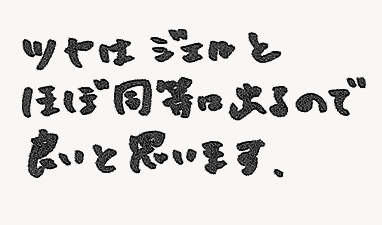 ツヤは ジェルと
ほぼ同等に出るので
良いと思います、